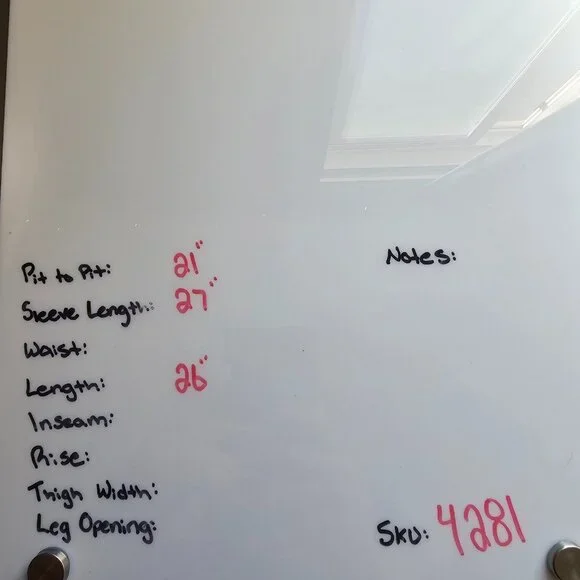 Pit to Pit: 21"
Sleeve Length: 27"
Waist:
Length: 26"
Inseam:
Rise:
Thigh Width:
Leg Opening:
Notes:
SKU: 4281